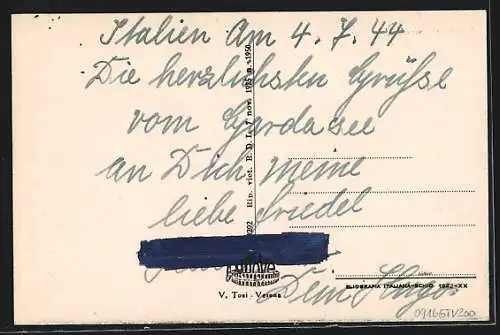 Italien Am 4. 7. 44
Die herzlichsten Grüsse
vom Gardasee
an Dich meine
liebe Friedel
Dein
V. Tosi - Verona
Rip. viet. R. D. L. 7 nov. 1925 n. 1950
ELIOGRAFIA ITALIANA-SCHIO 1942-XX